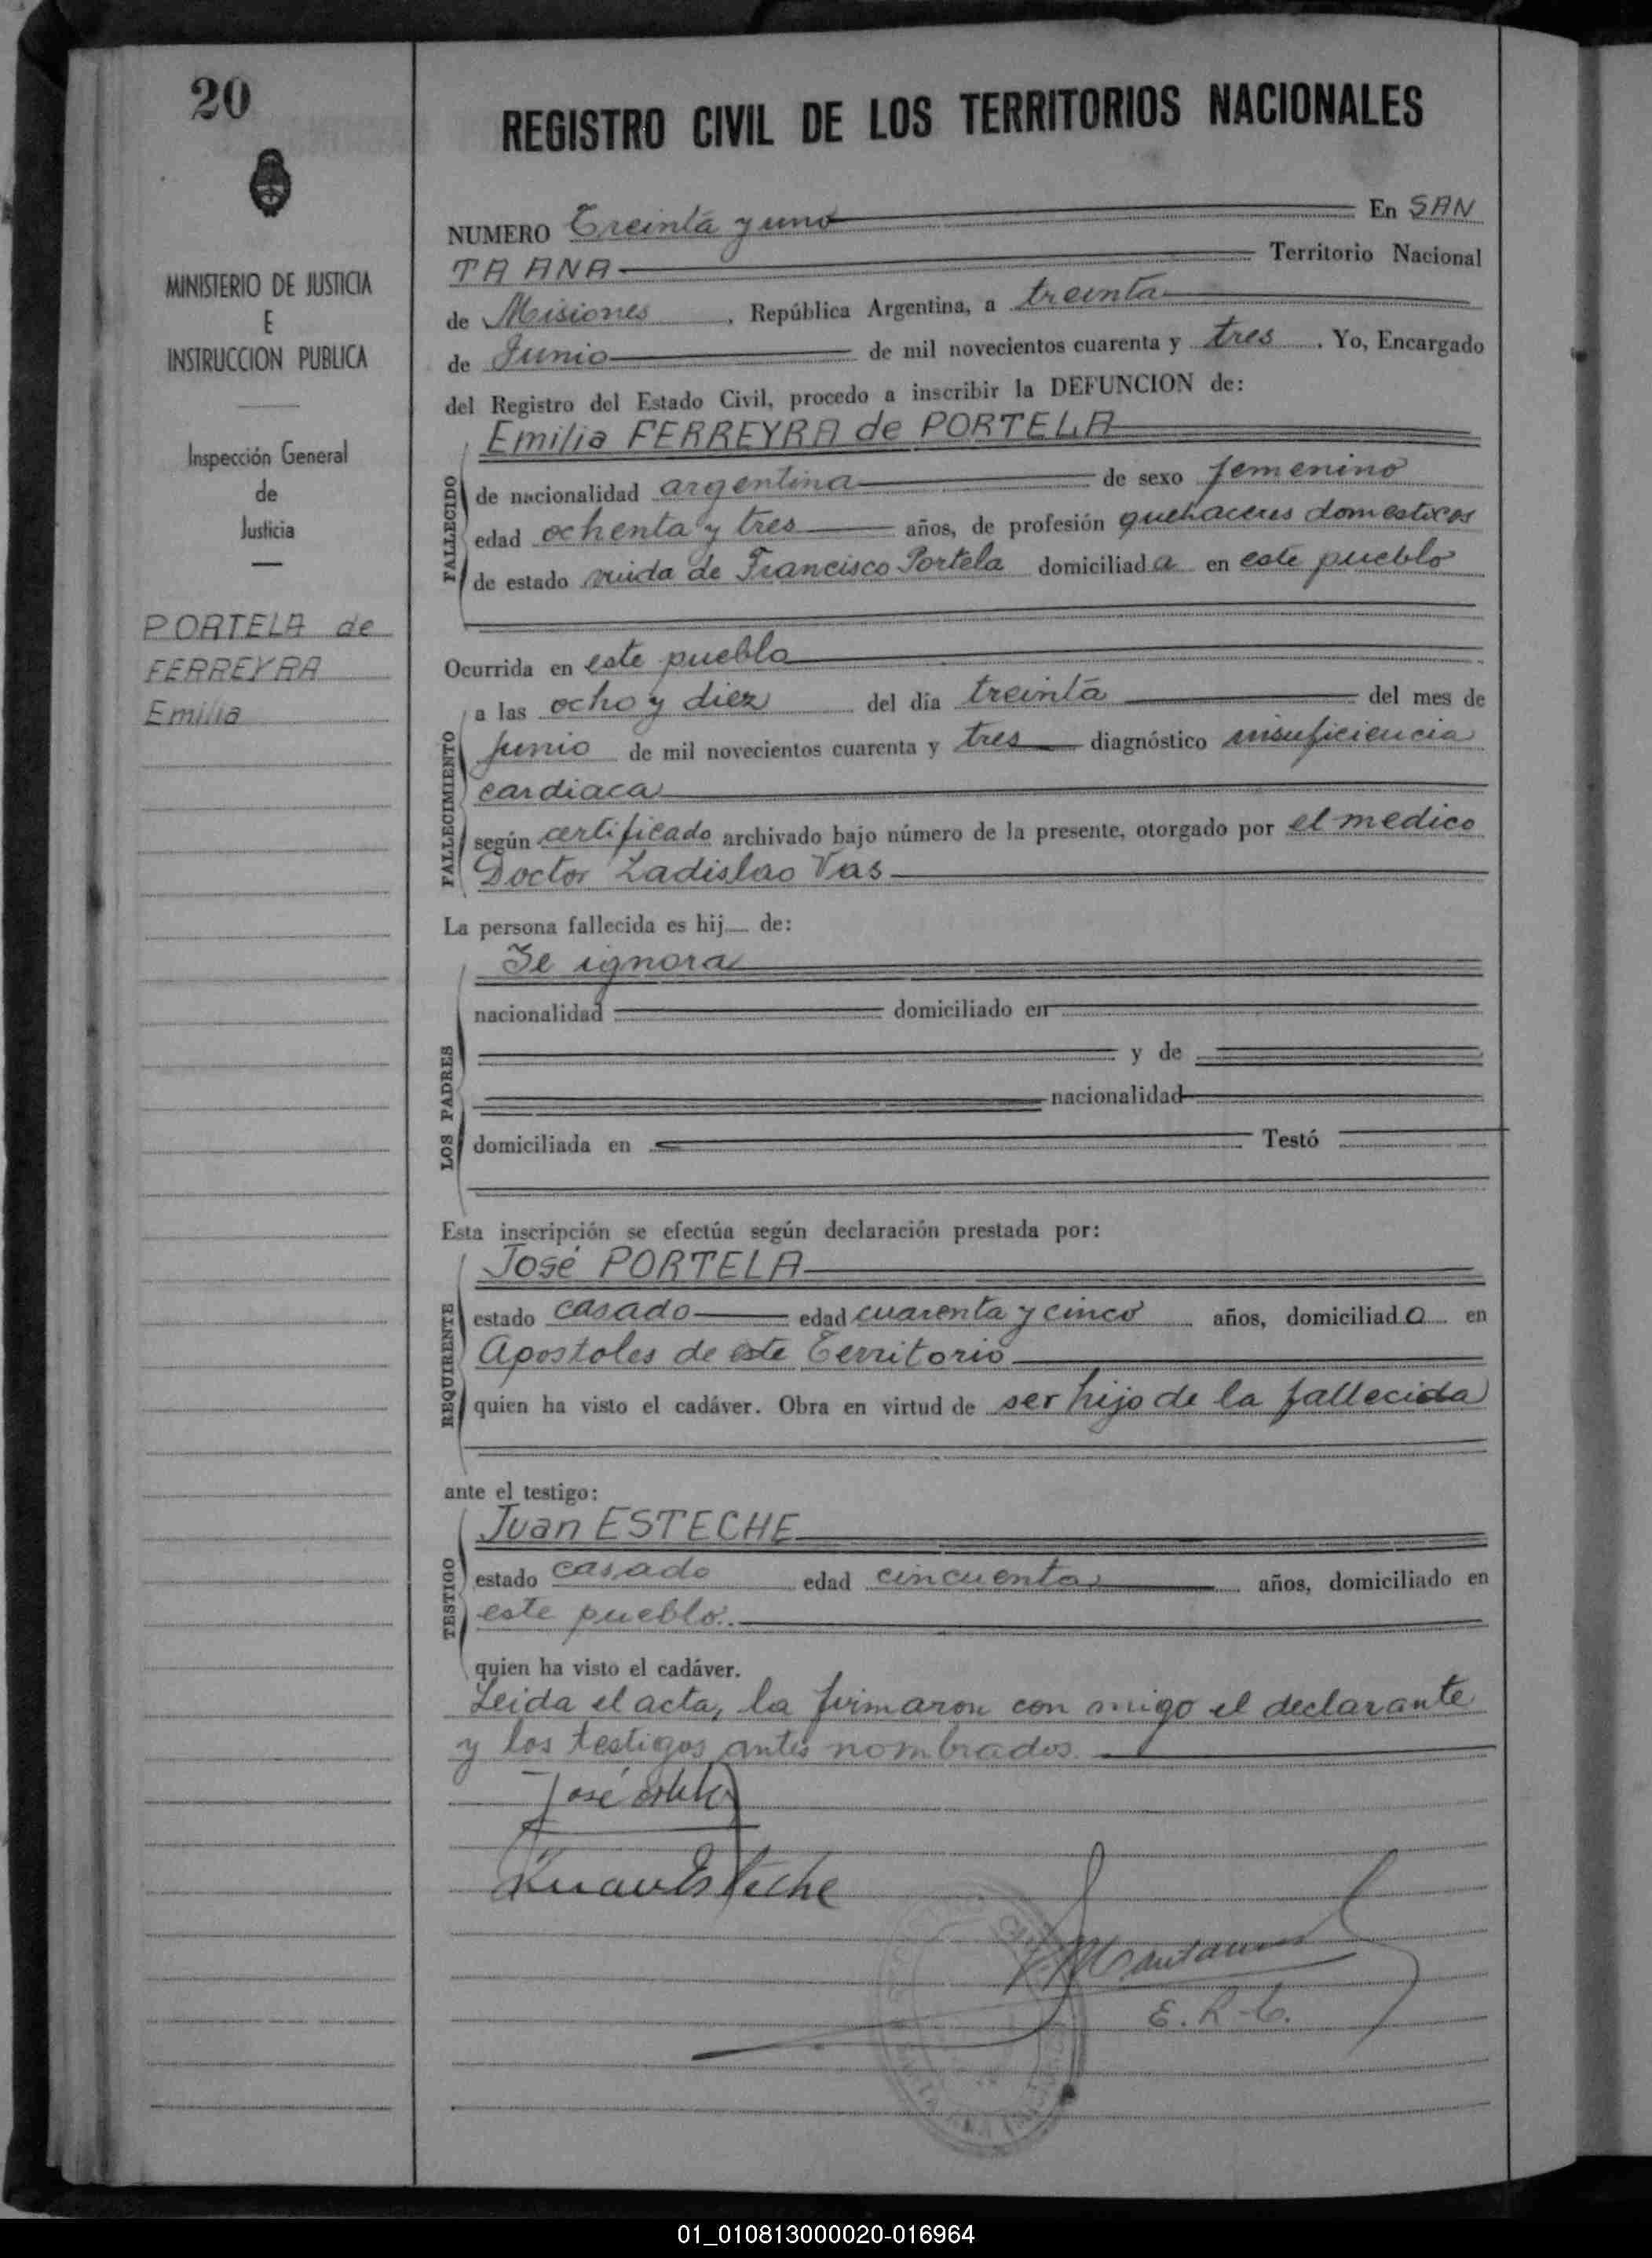 20
MINISTERIO DE JUSTICIA
E
INSTRUCCION PUBLICA
Inspección General
de
Justicia
PORTELA de
FERREYRA
Emilia
REGISTRO CIVIL DE LOS TERRITORIOS NACIONALES
NUMERO Treinta y uno En SAN
TA ANA Territorio Nacional
de Misiones, República Argentina, a treinta
de Junio de mil novecientos cuarenta y tres. Yo, Encargado
del Registro del Estado Civil, procedo a inscribir la DEFUNCION de:
Emilia FERREYRA de PORTELA
FALLECIDO
de nacionalidad argentina de sexo femenino
edad ochenta y tres años, de profesión quehaceres domesticos
de estado viuda de Francisco Portela domiciliada en este pueblo
Ocurrida en este pueblo
FALLECIMIENTO
a las ocho y diez del día treinta del mes de
junio de mil novecientos cuarenta y tres diagnóstico insuficiencia
cardiaca
según certificado archivado bajo número de la presente, otorgado por el medico
Doctor Ladislao Vas
La persona fallecida es hij de:
LOS PADRES
Se ignora
nacionalidad domiciliado en
y de
nacionalidad
domiciliada en Testó
Esta inscripción se efectúa según declaración prestada por:
REQUIRENTE
José PORTELA
estado casado edad cuarenta y cinco años, domiciliado en
Apostoles de este Territorio
quien ha visto el cadáver. Obra en virtud de ser hijo de la fallecida
ante el testigo:
TESTIGO
Juan ESTECHE
estado casado edad cincuenta años, domiciliado en
este pueblo.
quien ha visto el cadáver.
Leida el acta, la firmaron con migo el declarante
y los testigos antes nombrados.
José
Juan Esteche
E. R. C.
01_010813000020-016964